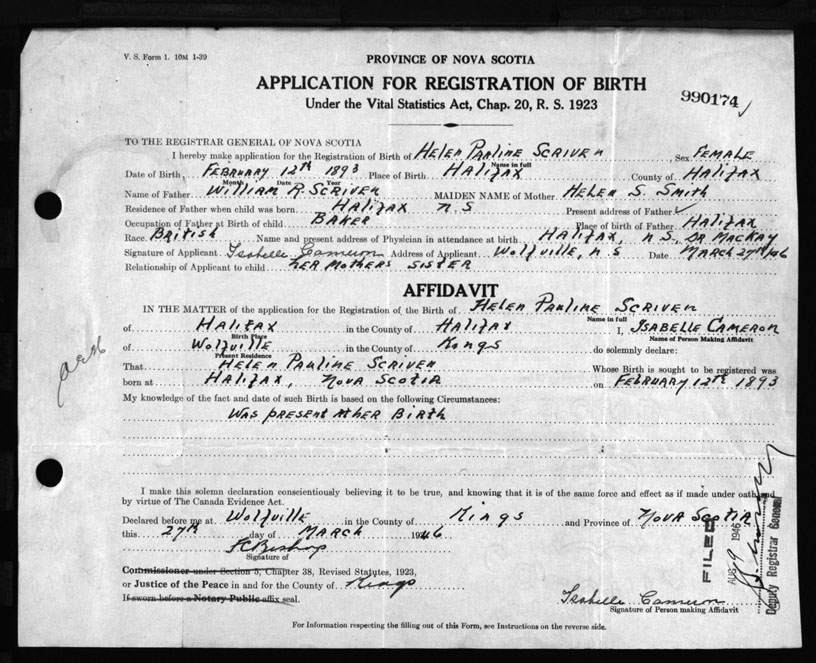 V. S. Form 1. 10M 1-39
PROVINCE OF NOVA SCOTIA
APPLICATION FOR REGISTRATION OF BIRTH
Under the Vital Statistics Act, Chap. 20, R. S. 1923
990174
TO THE REGISTRAR GENERAL OF NOVA SCOTIA
I hereby make application for the Registration of Birth of Helen Pauline Scriven Sex Female
Name in full
Date of Birth February 12th 1893 Place of Birth Halifax County of Halifax
Month Date Year
Name of Father William R. Scriven MAIDEN NAME of Mother Helen S. Smith
Residence of Father when child was born Halifax N.S Present address of Father
Occupation of Father at Birth of child Baker Place of birth of Father Halifax
Race British Name and present address of Physician in attendance at birth Halifax, N.S, Dr MacKay
Signature of Applicant Isabelle Cameron Address of Applicant Wolfville, N.S Date March 27th/46
Relationship of Applicant to child Her Mothers Sister
AFFIDAVIT
IN THE MATTER of the application for the Registration of the Birth of Helen Pauline Scriven
Name in full
of Halifax in the County of Halifax I, Isabelle Cameron
Birth Place Name of Person Making Affidavit
of Wolfville in the County of Kings do solemnly declare:
Present Residence
That Helen Pauline Scriven Whose Birth is sought to be registered was
born at Halifax, Nova Scotia on February 12th 1893
My knowledge of the fact and date of such Birth is based on the following Circumstances:
Was present at her Birth
I make this solemn declaration conscientiously believing it to be true, and knowing that it is of the same force and effect as if made under oath and
by virtue of The Canada Evidence Act.
Declared before me at Wolfville in the County of Kings and Province of Nova Scotia
this 27th day of March 1946
Bishop
Signature of
Commissioner under Section 5, Chapter 38, Revised Statutes, 1923,
or Justice of the Peace in and for the County of Kings
If sworn before a Notary Public affix seal.
Isabelle Cameron
Signature of Person making Affidavit
FILED
AUG 9 1946
Deputy Registrar General
For Information respecting the filling out of this Form, see Instructions on the reverse side.